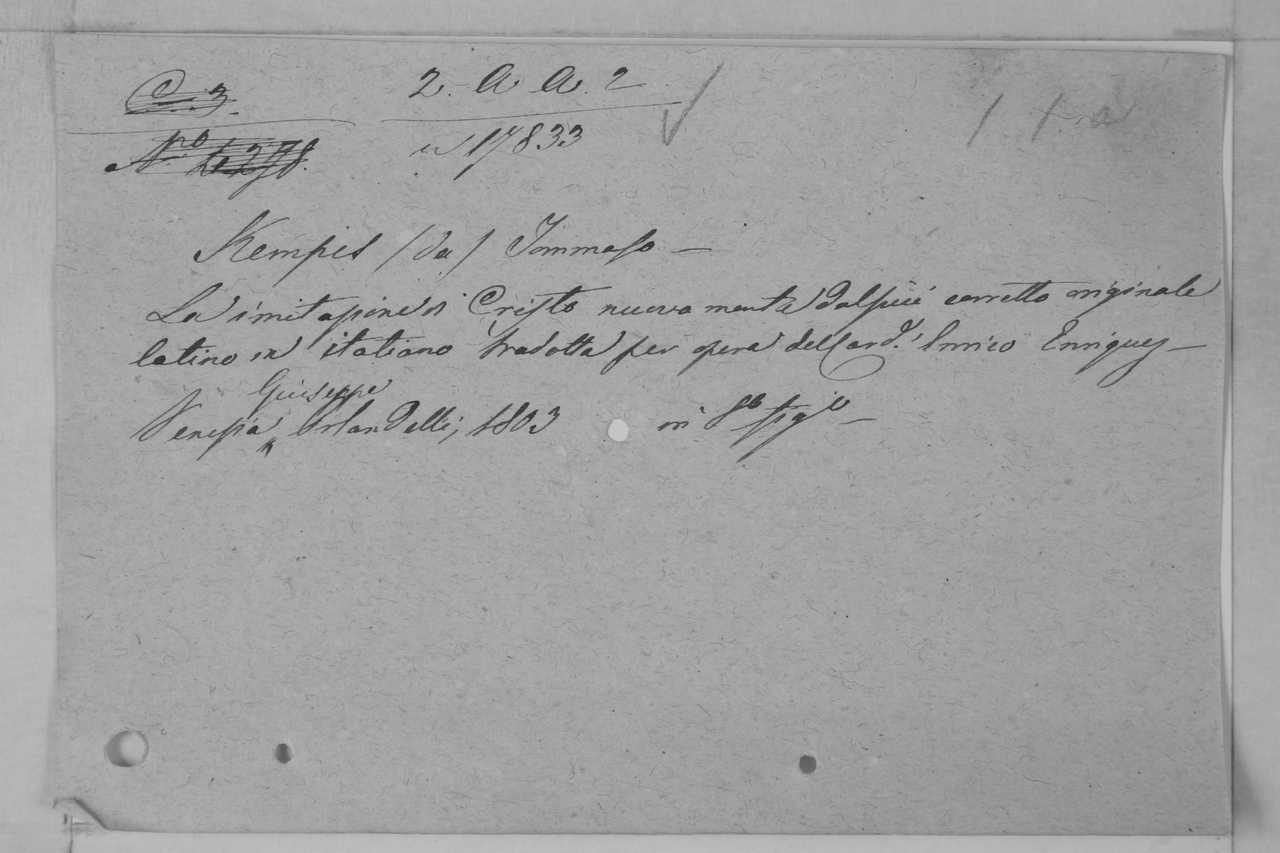 C. 3. 2. A. A. 2
Nro 4278. n 17833
Kempis (da) Tommaso —
La imitazione di Cristo nuovamente dal più corretto originale
latino in italiano tradotta per opera del Card.l Enrico Enriquez —
Giuseppe
Venezia, Orlandelli, 1803 in 8o fig.o —